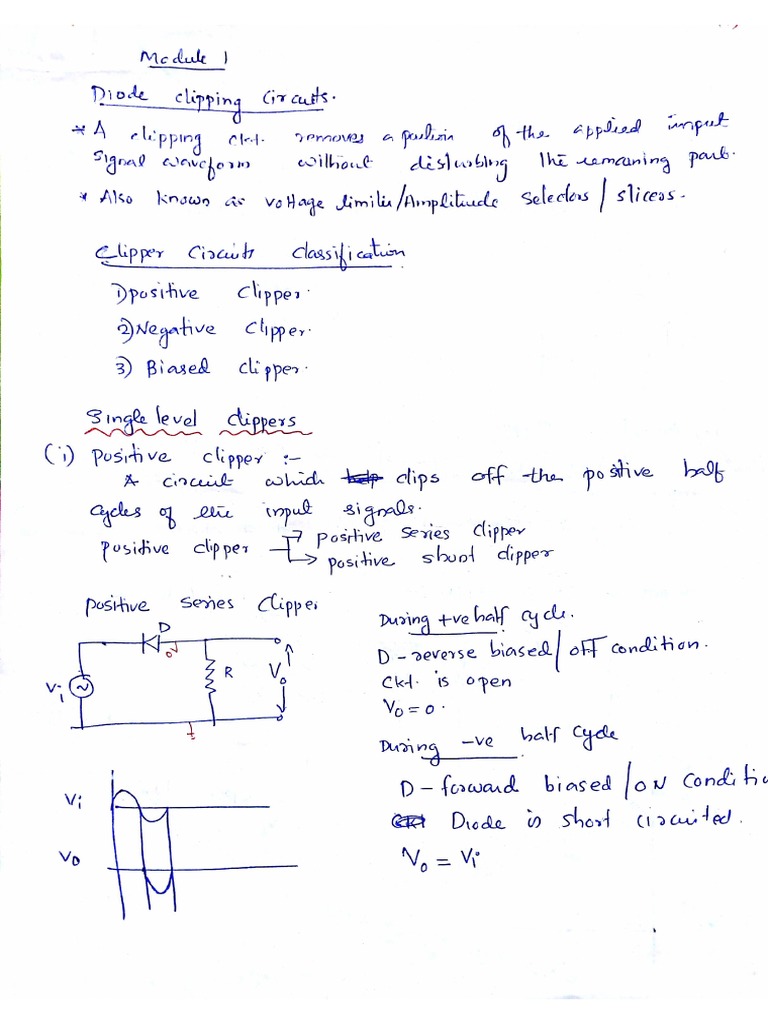 Module 1
Diode clipping Circuits.
* A clipping ckt. removes a portion of the applied input
signal waveform without disturbing the remaining part.
* Also known as voltage limiter/Amplitude selectors / slicers.
Clipper Circuits classification
1) positive Clipper.
2) Negative Clipper.
3) Biased clipper.
Single level clippers
(i) positive clipper :-
A circuit which clips off the positive half
cycles of the input signals.
positive clipper → positive series clipper
→ positive shunt clipper
positive series Clipper
D
Vi
R
Vo
During +ve half cycle.
D - reverse biased / off condition.
Ckt. is open
Vo = 0.
During -ve half cycle
D - forward biased / ON conditi
Diode is short circuited.
Vo = Vi
Vi
Vo